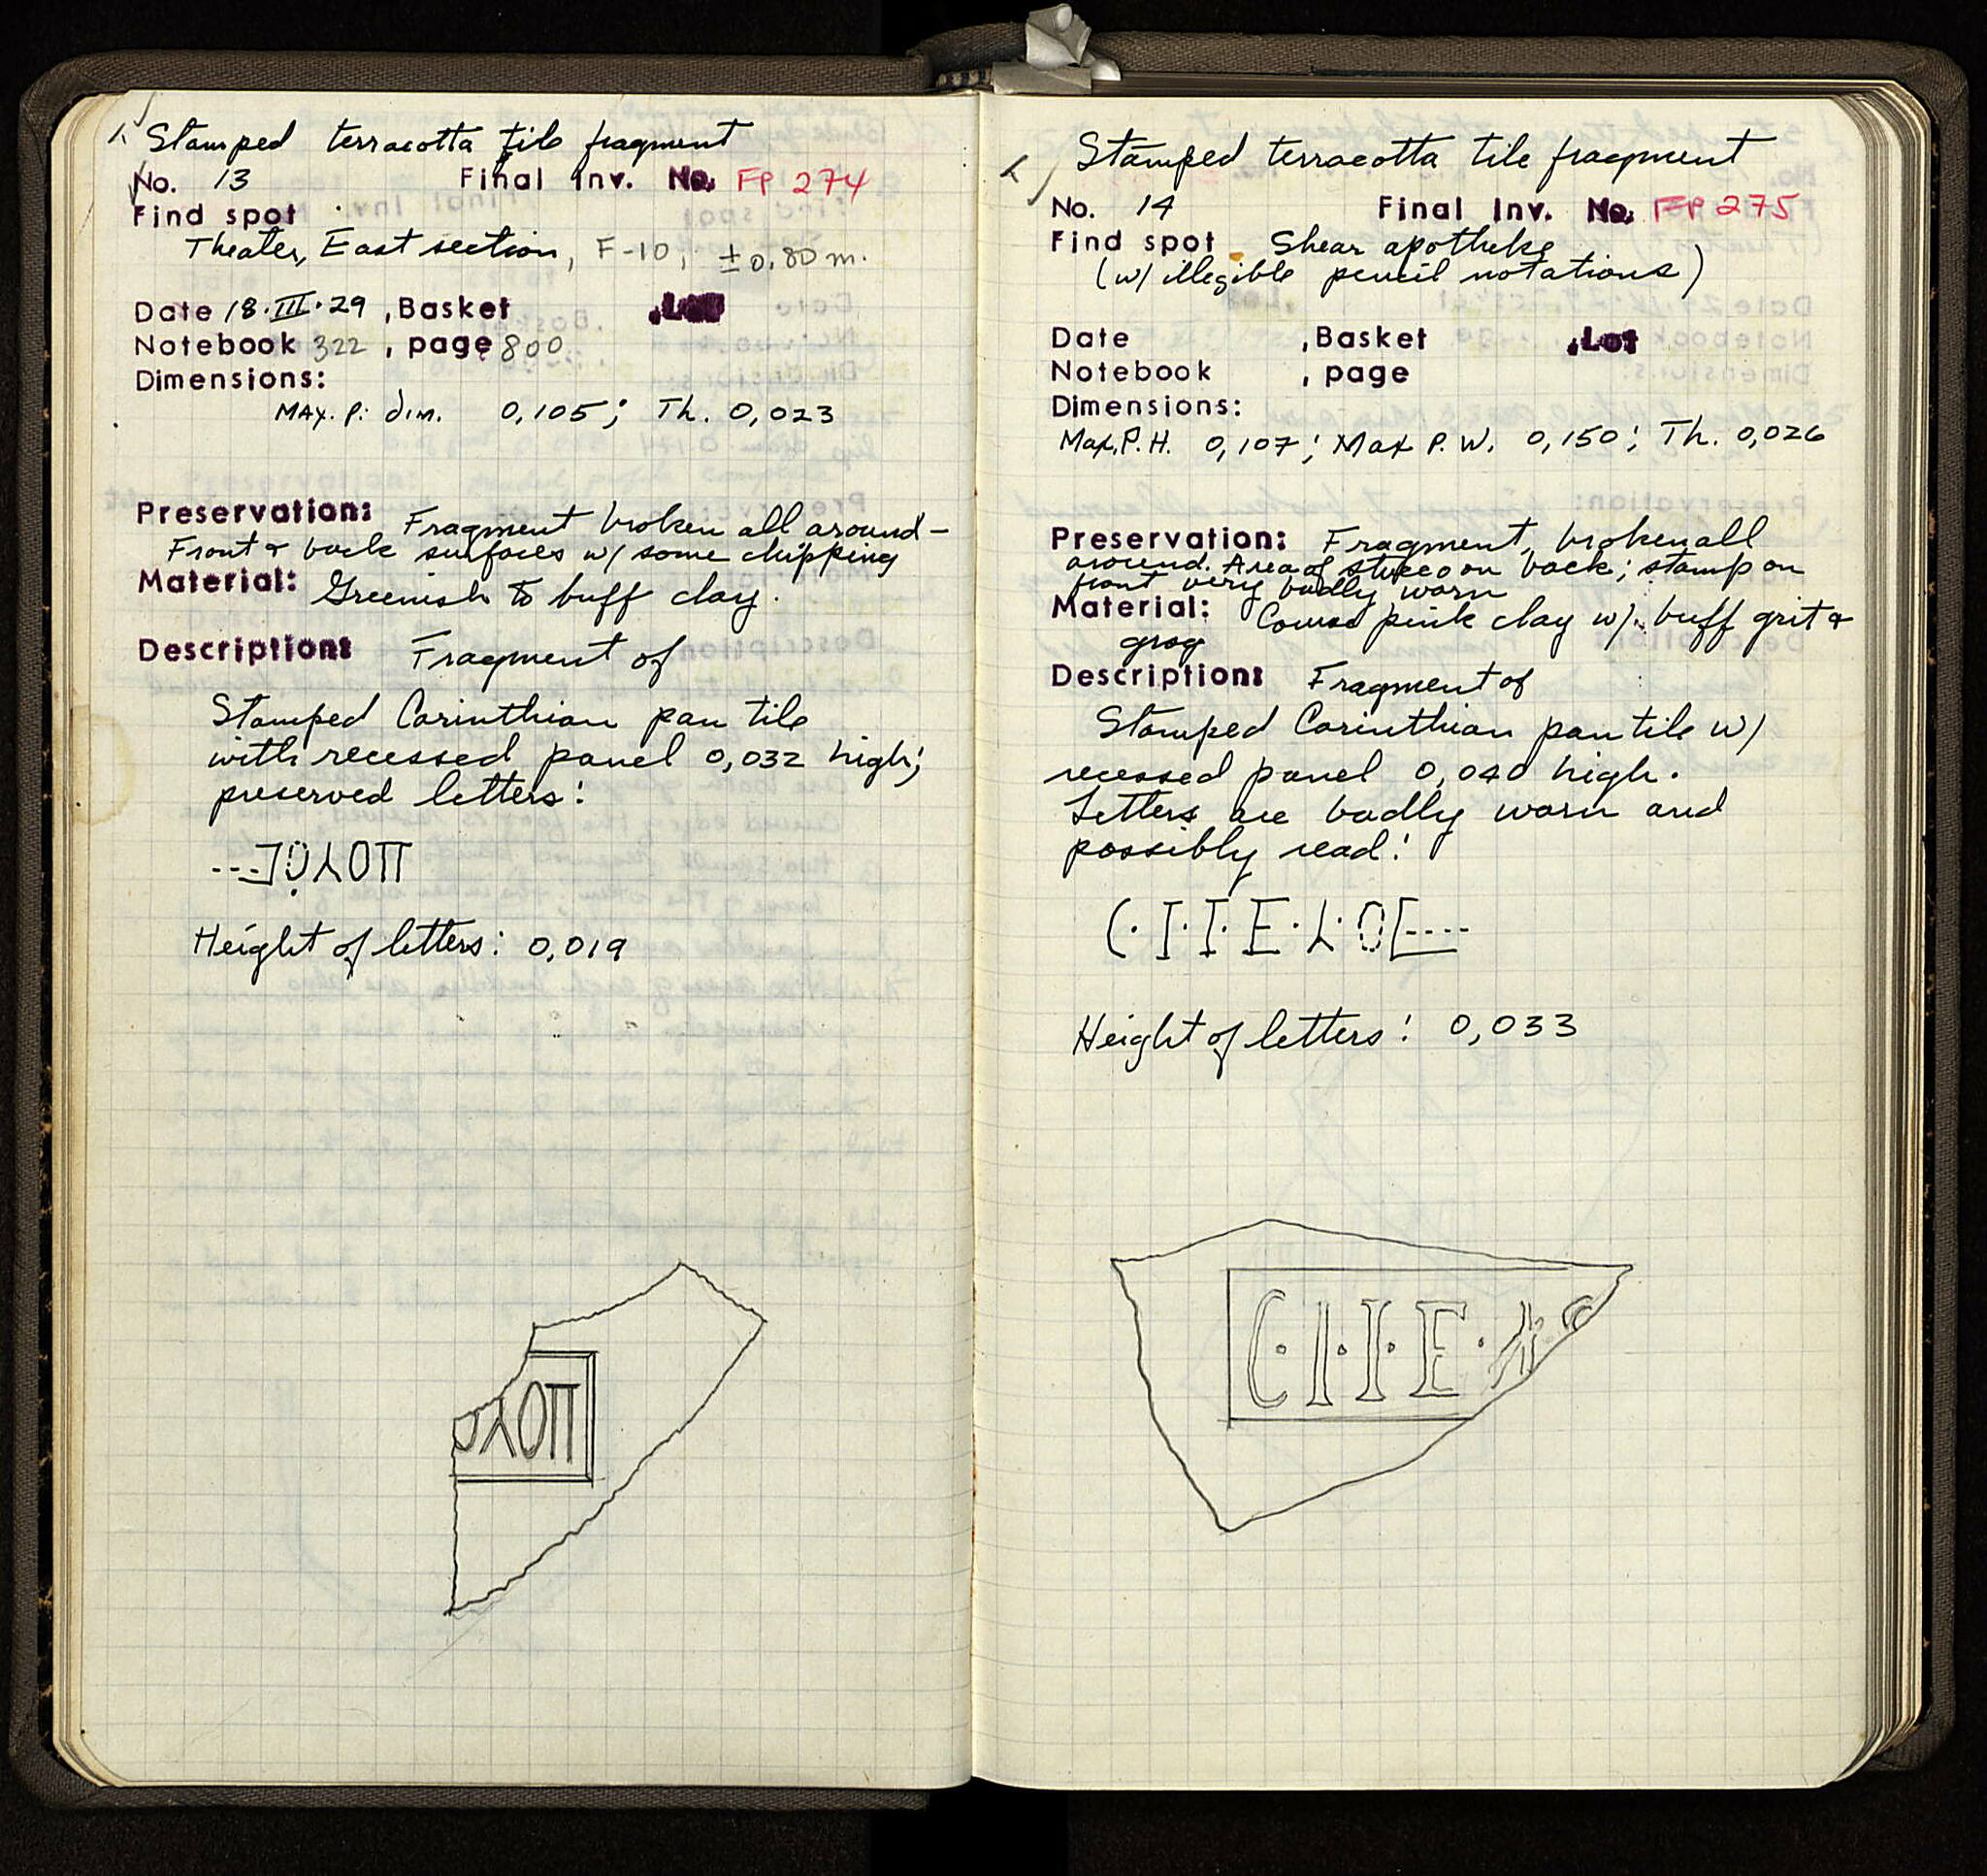 Stamped terracotta tile fragment
No. 13 Final Inv. No. FP 274
Find spot
Theater, East section, F-10; ±0,80 m.
Date 18.III.29 , Basket , Lot
Notebook 322 , page 800
Dimensions:
Max. P. dim. 0,105; Th. 0,023
Preservation: Fragment broken all around –
Front & back surfaces w/ some chipping
Material: Greenish to buff clay.
Description: Fragment of
Stamped Corinthian pan tile
with recessed panel 0,032 high;
preserved letters:
Height of letters: 0,019
Stamped terracotta tile fragment
No. 14 Final Inv. No. FP 275
Find spot Shear apotheke
(w/ illegible pencil notations)
Date , Basket , Lot
Notebook , page
Dimensions:
Max. P. H. 0,107; Max P. W. 0,150; Th. 0,026
Preservation: Fragment, broken all
around. Area of stucco on back; stamp on
front very badly worn
Material: Coarse pink clay w/ buff grit &
grog
Description: Fragment of
Stamped Corinthian pan tile w/
recessed panel 0,040 high.
Letters are badly worn and
possibly read:
C·I·I·E·
Height of letters: 0,033
C·I·I·E·